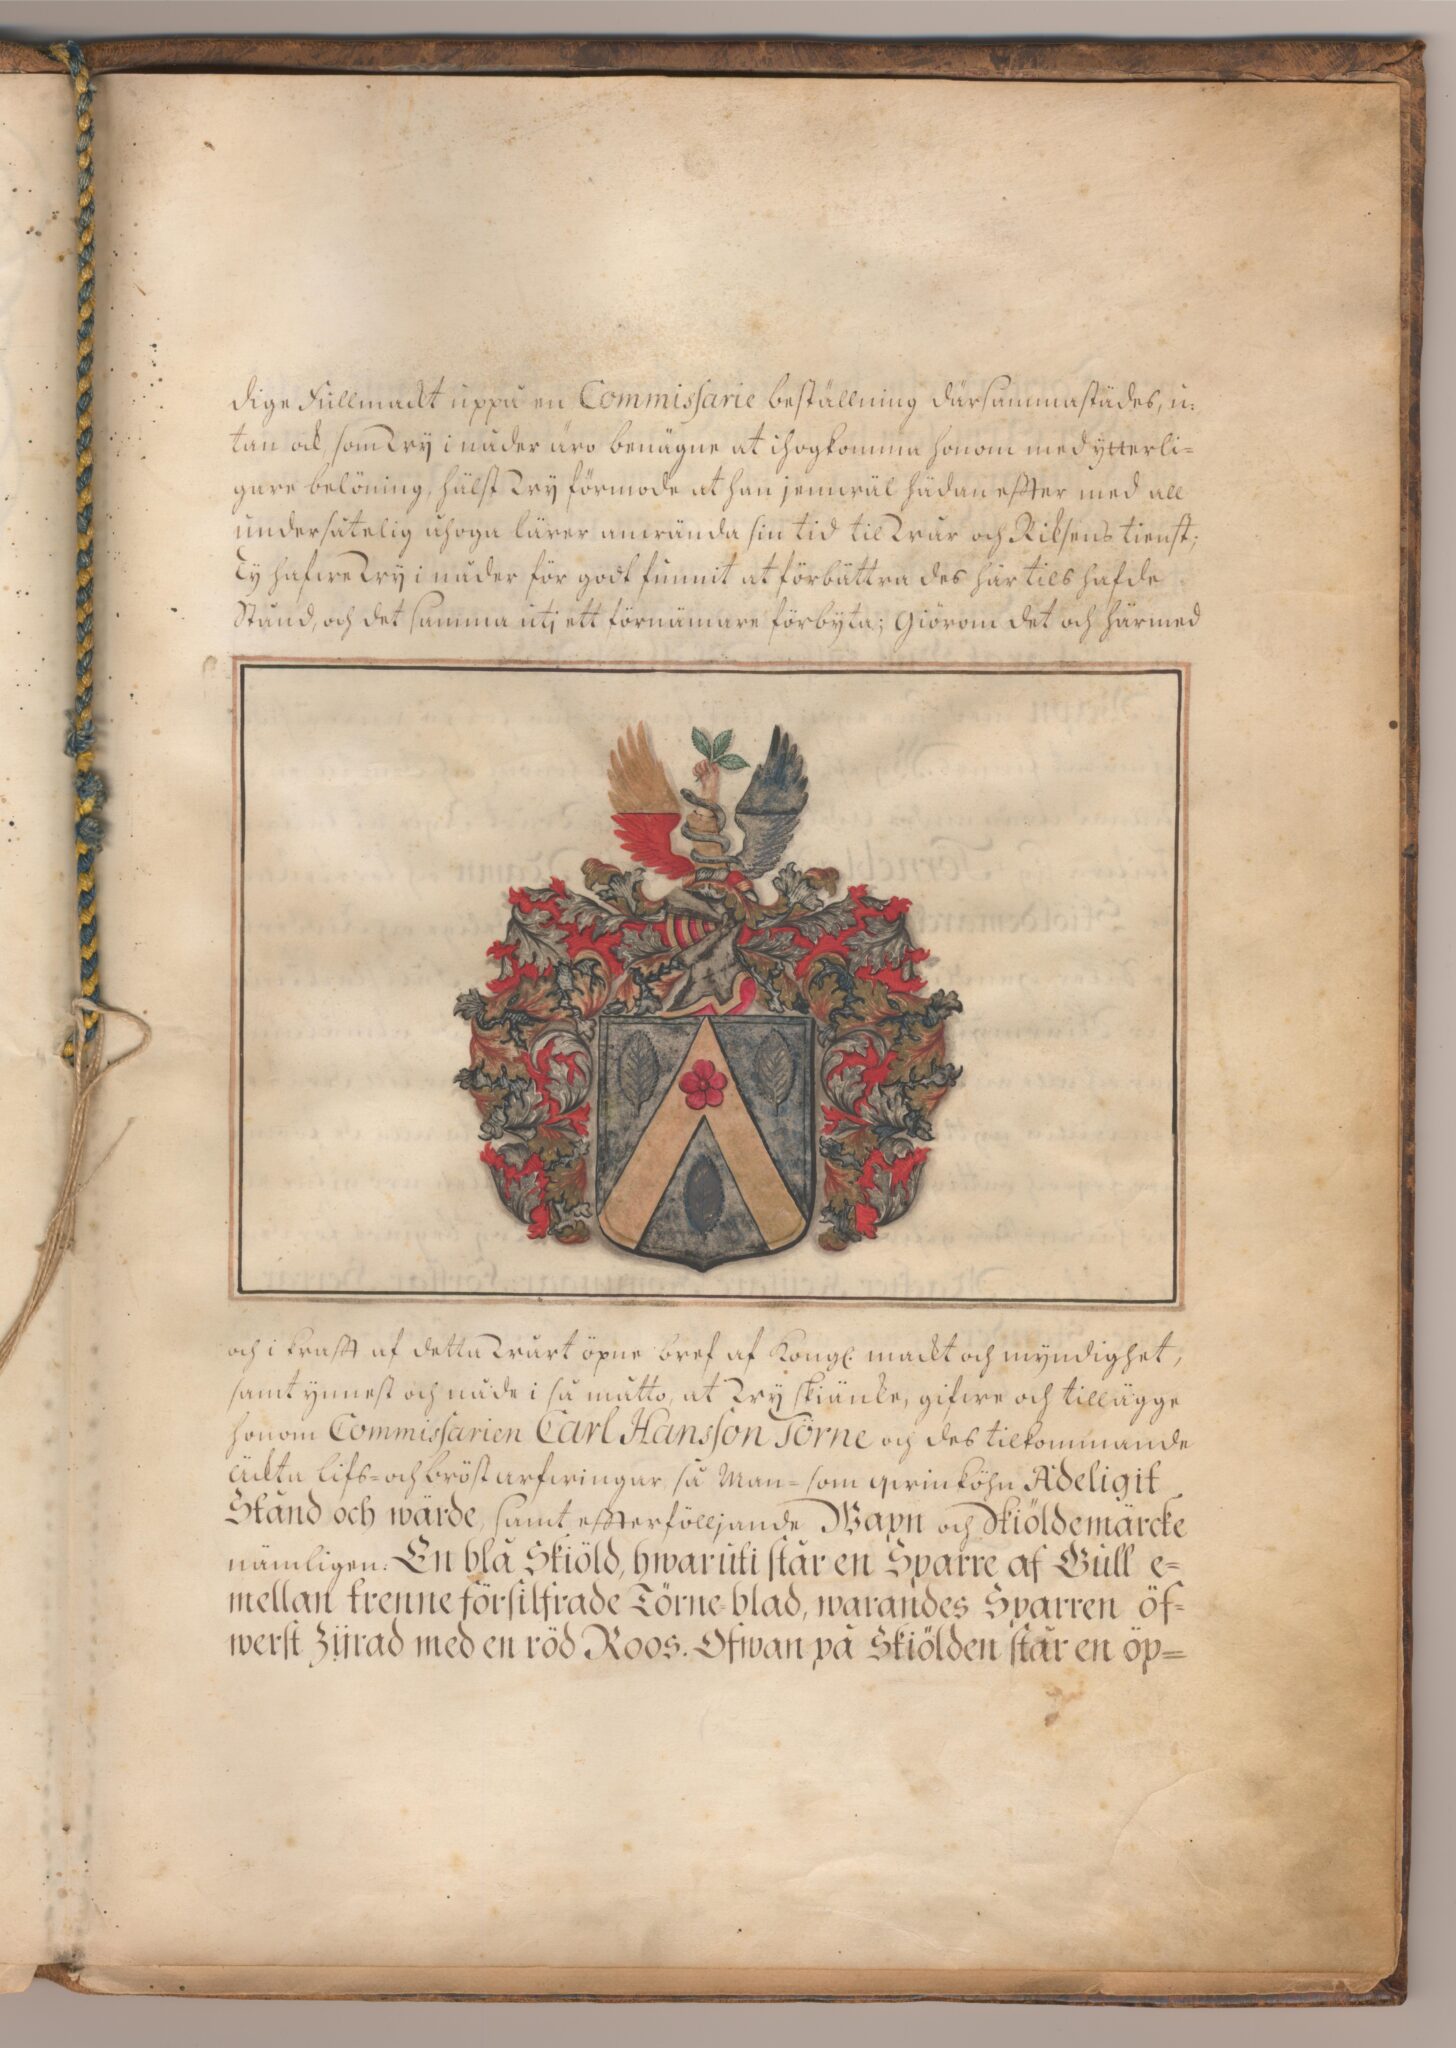 dige Fullmackt uppå en Commissarie beställning därsammastädes, u-
tan ock, som Wy i nåder äro benägne at ihogkomma honom med ytterli-
gare belöning, hälst Wy förmode at han jemwäl hädan effter med all
undersåtelig åhoga lärer anwända sin tid til Wår och Riksens tienst;
Ty hafwe Wy i nåder för godt funnit at förbättra des här tils hafde
Stånd, och det samma utj ett förnämare förbyta; Giörom det och härmed
och i krafft af detta Wårt öpne bref af Kongl. mackt och myndighet,
samt ynnest och nåde i så måtto, at Wy skiänke, gifwe och tillägge
honom Commissarien Carl Hansson Törne och des tilkommande
äckta lifs- och bröst arfwingar, så Man- som qwinköhn Adeligit
Stånd och wärde, samt effterfölljande Wapn och Skiöldemärcke
nämligen: En blå Skiöld, hwaruti står en Sparre af Gull e-
mellan trenne försilfrade Törne-blad, warandes Sparren öf-
werst Zijrad med en röd Roos. Ofwan på Skiölden står en öp-